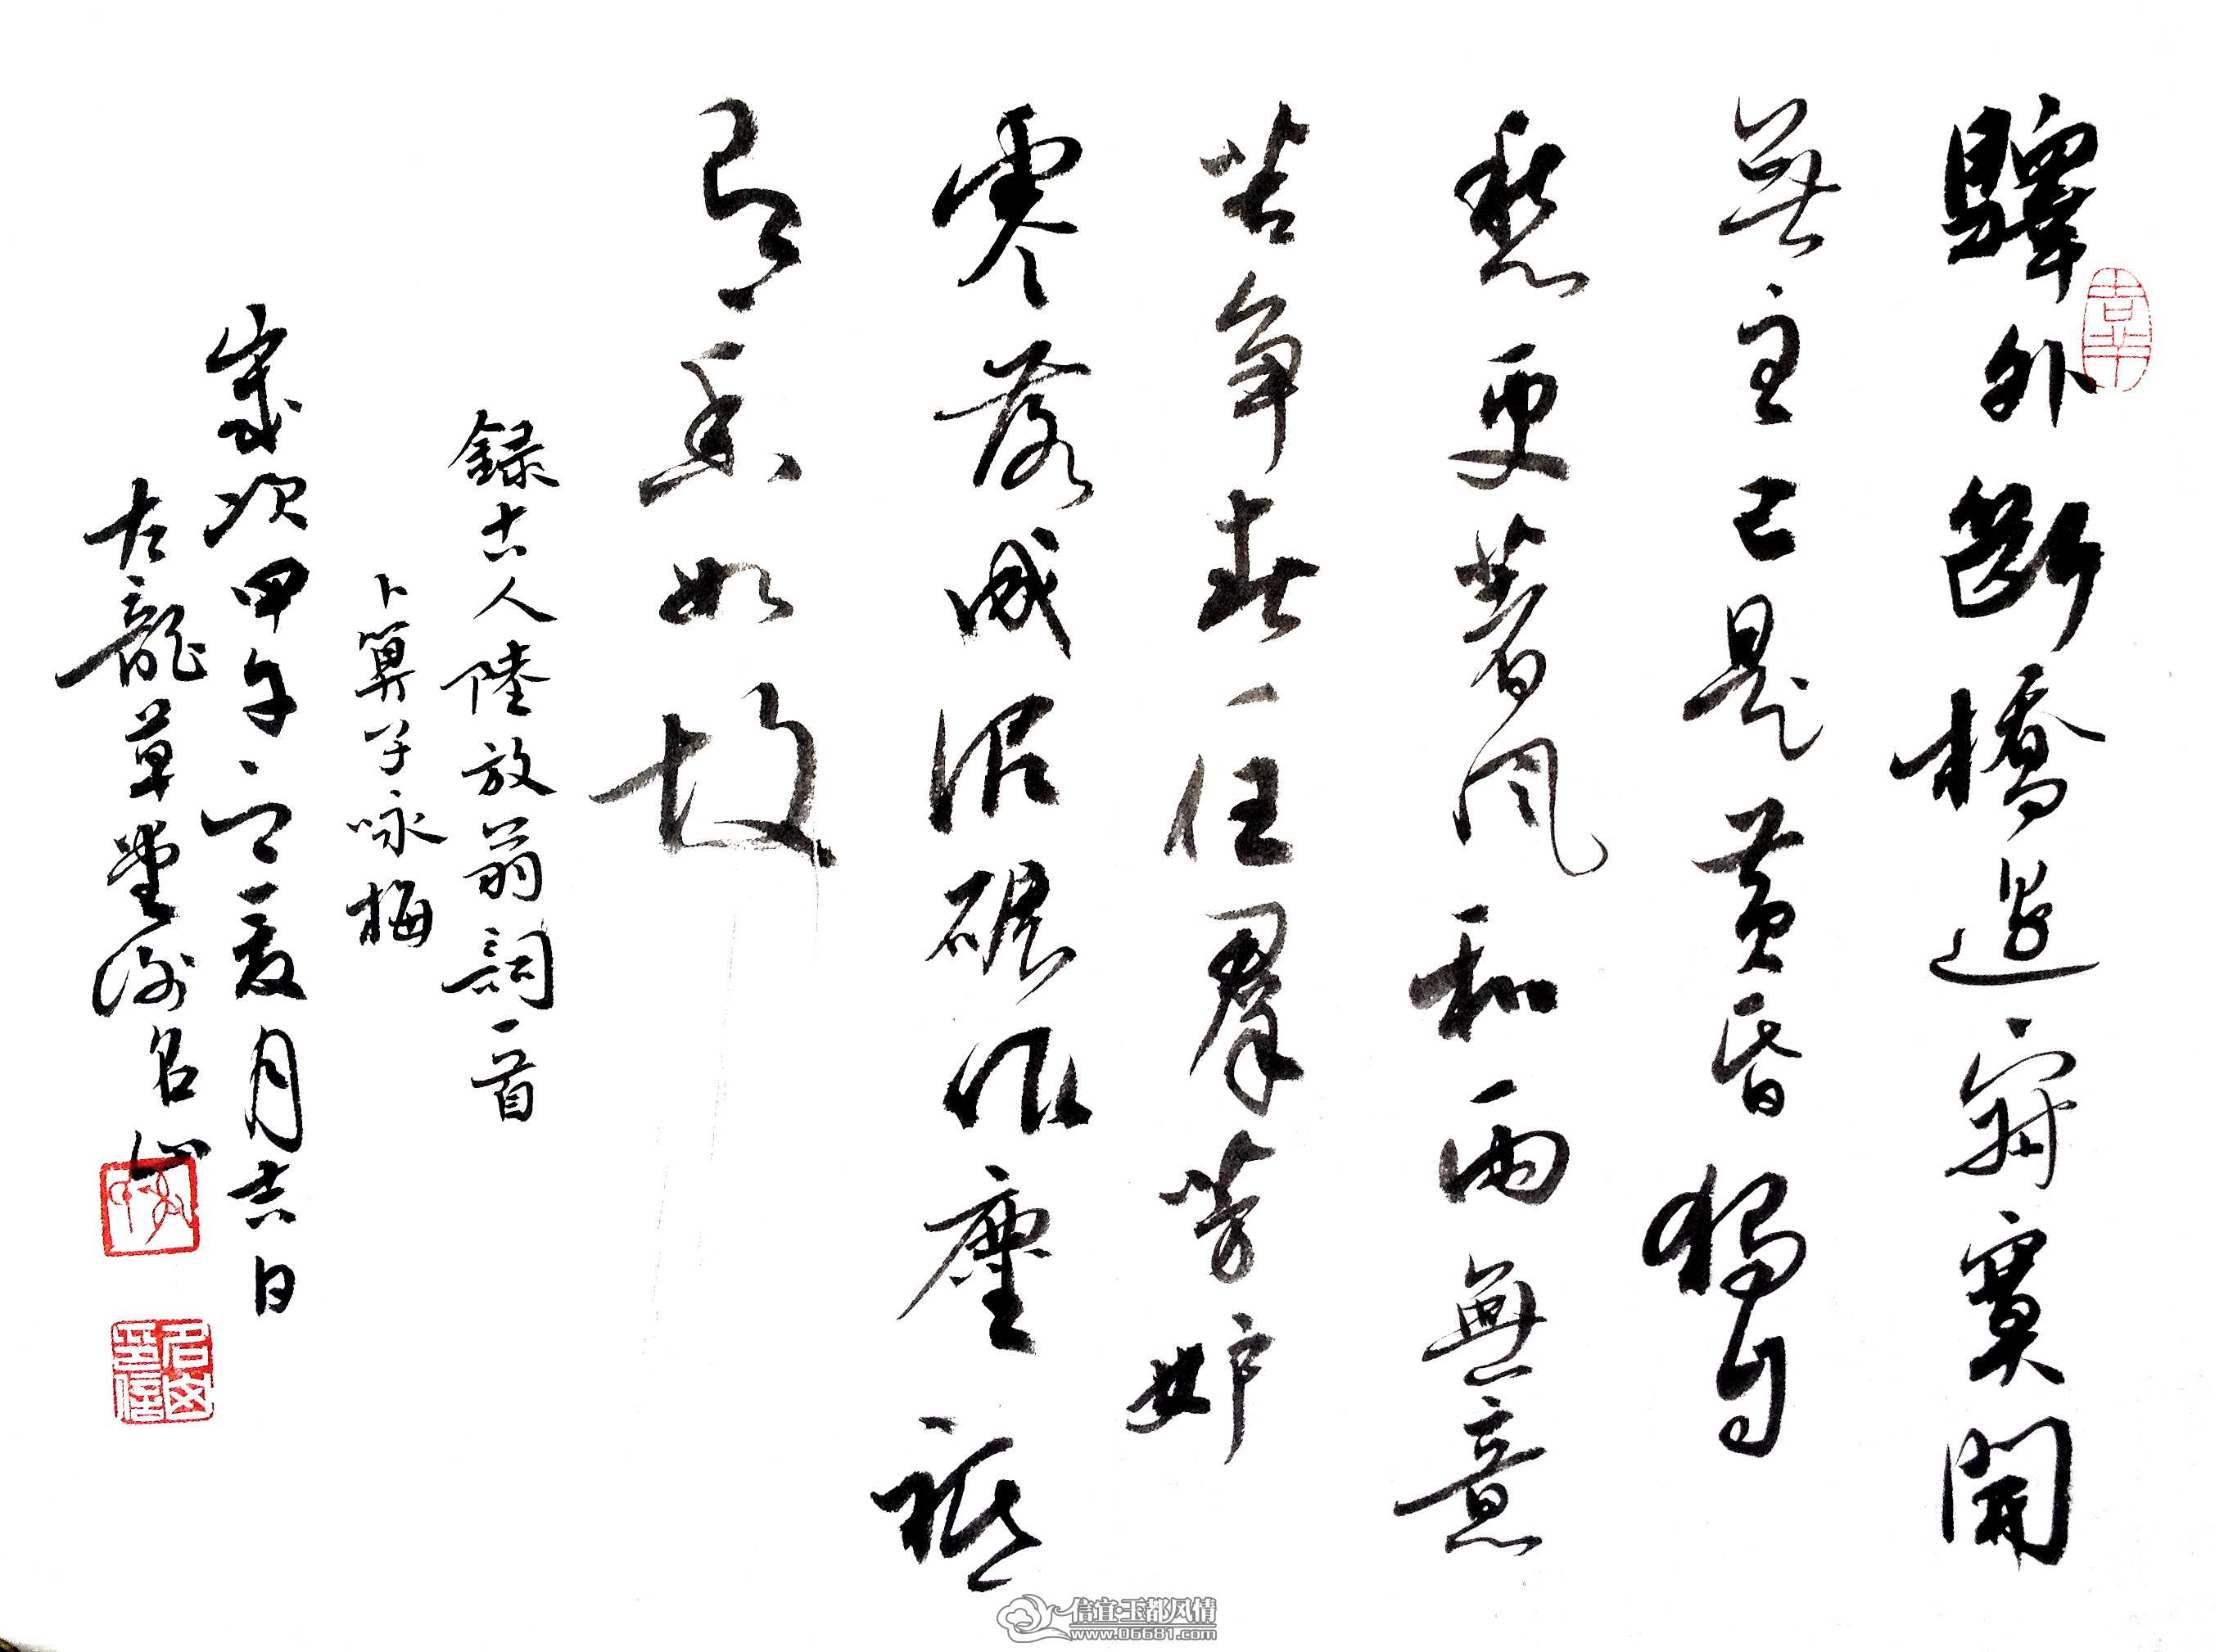 驛外斷橋邊寂寞開
無主已是黃昏獨自
愁更著風和雨無意
苦爭春一任羣芳妒
零落成泥碾作塵祇
有香如故
錄古人陸放翁詞一首
卜算子咏梅
歲次甲午之夏月吉日
龍草堂
信宜·玉都风情
www.06681.com